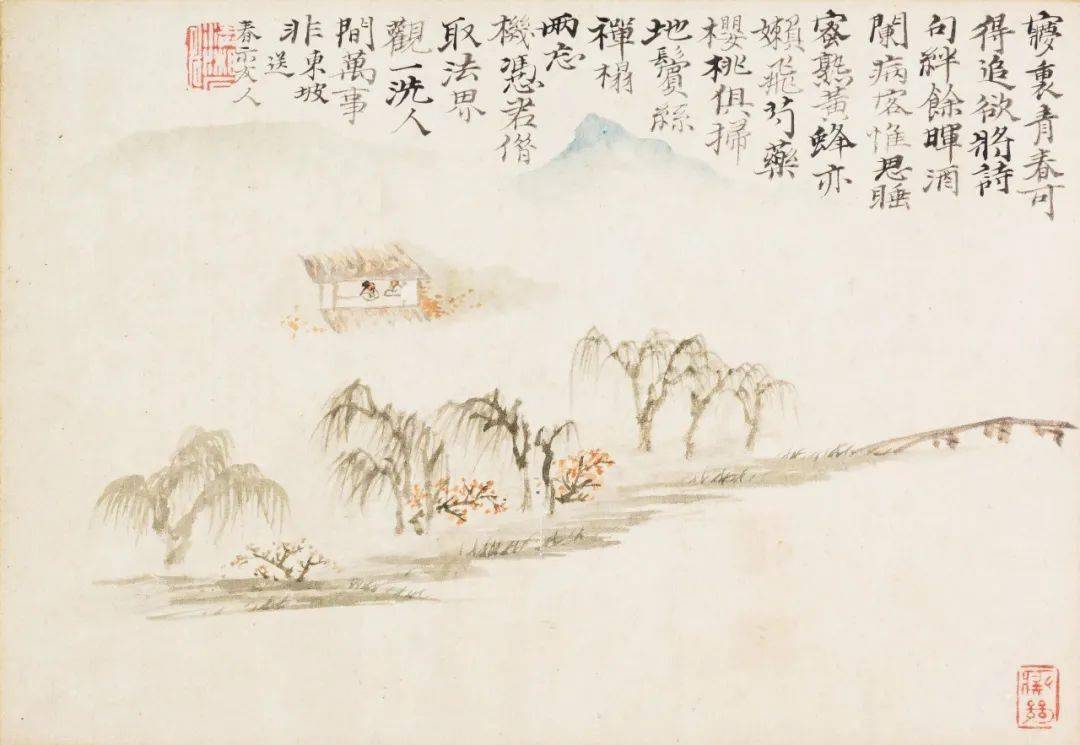 夢裏青春可
得追欲將詩
句絆餘暉酒
闌病客惟思睡
蜜熟黃蜂亦
嬾飛芍藥
櫻桃俱掃
地鬢絲
禪榻
兩忘
機憑君借
取法界
觀一洗人
間萬事
非東坡送
春示友人